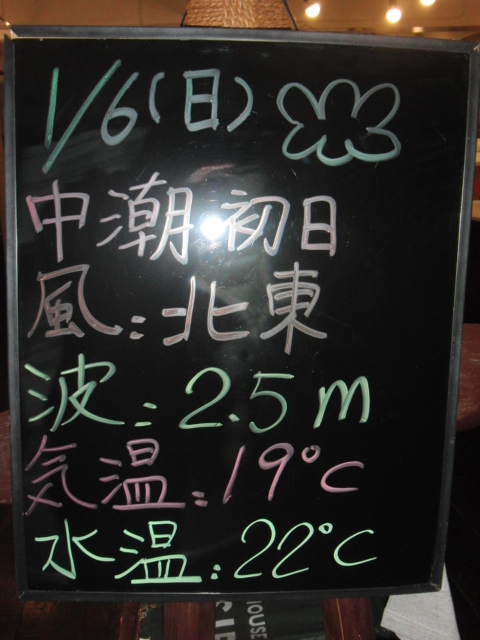 1/6(日)
中潮 初日
風:北東
波:2.5m
気温:19℃
水温:22℃
HOUSE